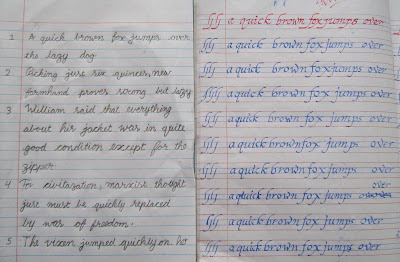 1 A quick brown fox jumps over
the lazy dog.
2 Picking just six quinces, new
farmhand proves strong but lazy
3 William said that everything
about his jacket was in quite
good condition except for the
zipper.
4 For civilazation, marxist thought
just must be quickly replaced
by was of freedom.
5 The vixen jumped quickly on her
a quick brown fox jumps over
a quick brown fox jumps over
a quick brown fox jumps over
a quick brown fox jumps over
a quick brown fox jumps over
a quick brown fox jumps over
a quick brown fox jumps over
over
a quick brown fox jumps
a quick brown fox jumps over
a quick brown fox jumps over